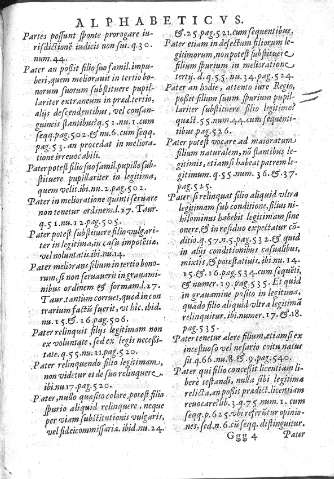 ALPHABETICVS.
Partes possunt sponte prorogare iu-
risdictionē iudicii non sui. q. 30.
num. 44.
Pater an possit filio suo famil. impu-
beri, quem melioravit in tertio bo-
norum suorum substituere pupil-
lariter extraneum in præd. tertio,
aliis descendentibus, vel consan-
guineis stantibus? q. 52. nu. 1. cum
seqq. pag. 502. & nu. 6. cum seqq.
pag. 53. an procedat in meliora-
tione irrevocabili.
Pater potest filio suo famil. pupillo sub-
stituere pupillariter in legitima,
quem velit. ibi. nu. 2. pag. 502.
Pater in melioratione quinti servare
non tenetur ordinem l. 27. Taur.
q. 51. nu. 12. pag. 503.
Pater potest substituere filio vulgari-
ter in legitima, in casu impotētiæ,
vel voluntatis. ibi. nu. 14.
Pater meliorans filium in tertio bono-
rum, si non servaverit in gravami-
nibus ordinem & formam l. 27.
Taur. tantum corruet, quod in con-
trarium factū fuerit, vt hic. ibid.
nu. 15. & 16. pag. 506.
Pater relinquit filiis legitimam non
ex voluntate, sed ex legis necessi-
tate. q. 55. nu. 12. pag. 520.
Pater relinquendo filio legitimam,
non videtur ei de suo relinquere,
ibi nu. 17. pag. 520.
Pater, nullo quæsito colore, potest filio
spurio aliquid relinquere, neque
per viam substitutionis vulgaris,
vel fideicommissariæ. ibid. nu. 24.
& 25. pag. 521. cum sequentibus,
Pater etiam in defectum filiorum le-
gitimorum, non potest substituere
filium spurium in melioratione
tertij. d. q. 55. nu. 34. pag. 524.
Pater an hodie, attento iure Regio,
possit filium suum spurium pupil-
lariter substituere filio legitimo
quæst. 55. num. 44. cum sequenti-
bus pag. 526.
Pater potest vocare ad maioratum
filium naturalem, nō stantibus le-
gitimis, etiamsi habeat patrem le-
gitimum. q. 55. num. 36. & 37.
pag. 525.
Pater si relinquat filio aliquid vltra
legitimam sub conditione, filius ni-
hilominus habebit legitimam sine
onere, & in residuo expectabitur cō-
ditio. q. 57. n. 5. pag. 532. & quid
in aliis conditionibus casualibus,
mixtis, & potestativis, ibi. nu. 14.
15. & 16. pag. 534. cum sequēti,
& numer. 19. pag. 535. Et quid
in gravamine posito in legitima,
quādo filio aliquid vltra legitimā
relinquitur, ibi numer. 17. & 18.
pag. 535.
Pater tenetur alere filium, etiamsi ex
incestuoso vel nefario coitu natus
sit q. 66. nu. 8. & 9. pag. 540.
Pater qui filio concessit licentiam li-
berè testandi, nulla sibi legitima
relicta, an possit prædict. licentiam
revocare lib. 3. q. 75. num. 1. cum
seqq. p. 625. vbi referūtur opinio-
nes, sed n. 6. cū seqq. distinguitur.
Ggg 4 Pater